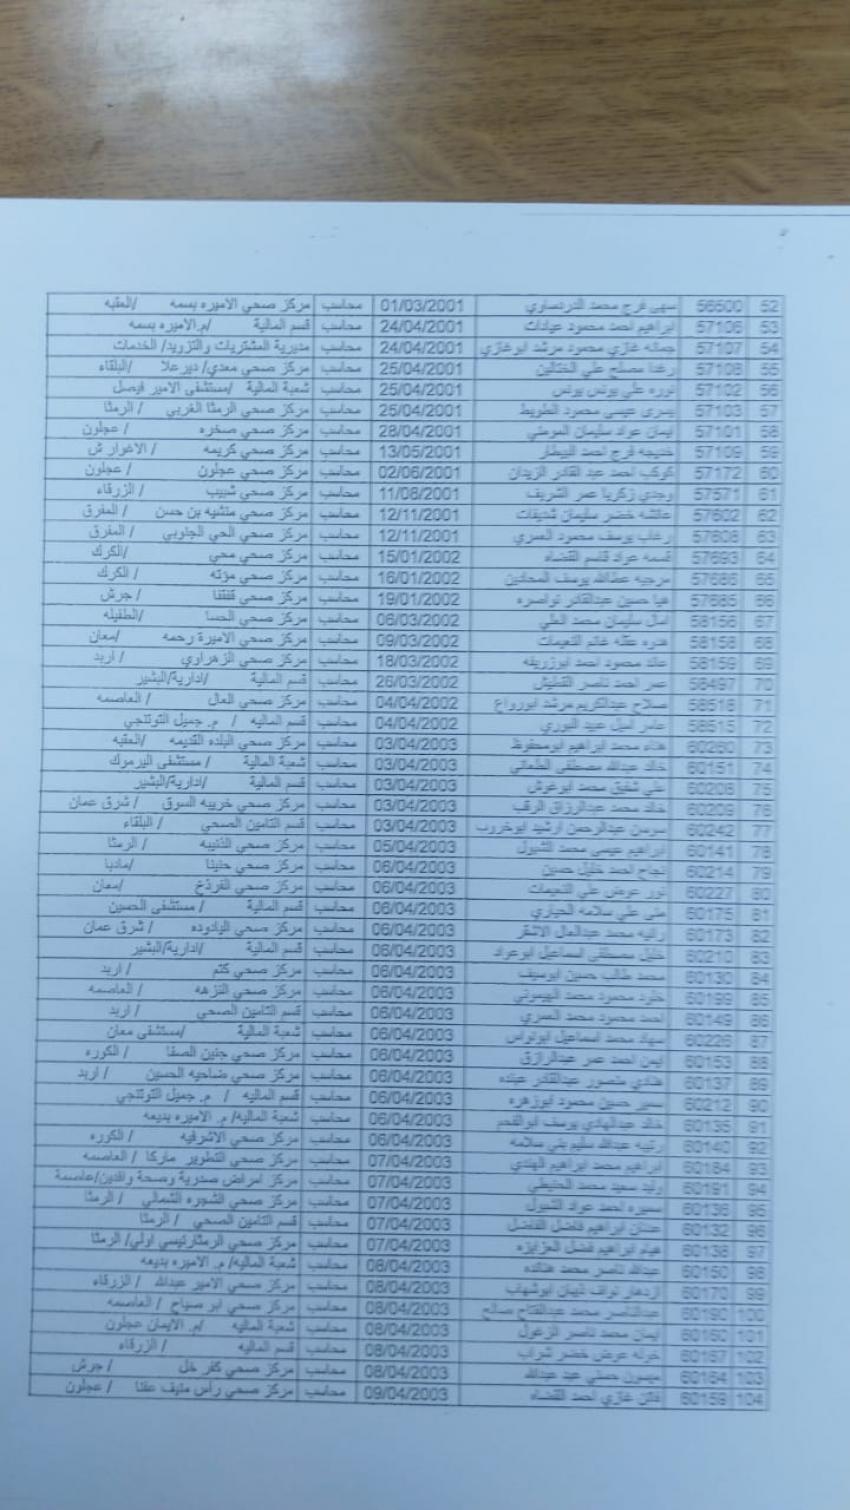 52 56500 سهى فرج محمد الدردساوي 01/03/2001 محاسب مركز صحي الاميره بسمه /العقبه
53 57106 ابراهيم احمد محمود عيادات 24/04/2001 محاسب قسم المالية /م.الاميره بسمه
54 57107 جمانه غازي محمود مرشد ابوغازي 24/04/2001 محاسب مديرية المشتريات والتزويد/ الخدمات
55 57108 رغدا مصلح علي الختالين 25/04/2001 محاسب مركز صحي معدي/ ديرعلا /البلقاء
56 57102 نوره علي يونس يونس 25/04/2001 محاسب شعبة المالية /مستشفى الامير فيصل
57 57103 يسرى عيسى محمود الطويط 25/04/2001 محاسب مركز صحي الرمثا الغربي / الرمثا
58 57101 ايمان عواد سليمان المومني 28/04/2001 محاسب مركز صحي صخره / عجلون
59 57109 خديجه فرج احمد البيطار 13/05/2001 محاسب مركز صحي كريمه / الاغوار ش
60 57172 كوكب احمد عبد القادر الزيدان 02/06/2001 محاسب مركز صحي عجلون / عجلون
61 57571 وجدي زكريا عمر الشريف 11/08/2001 محاسب مركز صحي شبيب / الزرقاء
62 57602 عائشه خضر سليمان شديفات 12/11/2001 محاسب مركز صحي منشيه بن حسن / المفرق
63 57608 رغاب يوسف محمود العمري 12/11/2001 محاسب مركز صحي الحي الجنوبي / المفرق
64 57693 قسمه عواد قاسم القضاه 15/01/2002 محاسب مركز صحي محي /الكرك
65 57686 مرجيه عطالله يوسف المحادين 16/01/2002 محاسب مركز صحي مؤته / الكرك
66 57685 هيا حسين عبدالقادر نواصره 19/01/2002 محاسب مركز صحي قفقفا / جرش
67 58156 امال سليمان محمد العلي 06/03/2002 محاسب مركز صحي الحسا /الطفيله
68 58158 قدره عقله غانم النعيمات 09/03/2002 محاسب مركز صحي الاميرة رحمه /معان
69 58159 عائد محمود احمد ابوزريقه 18/03/2002 محاسب مركز صحي الزهراوي / اربد
70 58497 عمر احمد ناصر 26/03/2002 محاسب قسم المالية /ادارية/البشير
71 58516 صلاح عبدالكريم مرشد ابورواع 04/04/2002 محاسب مركز صحي العال / العاصمه
72 58515 عامر اميل عبيد النوري 04/04/2002 محاسب قسم الماليه / م. جميل التوتنجي
73 60260 هناء محمد ابراهيم ابومحفوظ 03/04/2003 محاسب مركز صحي البلده القديمه /العقبه
74 60151 خالد عبدالله مصطفى الطعاني 03/04/2003 محاسب شعبة المالية / مستشفى اليرموك
75 60206 علي شفيق محمد ابوعوش 03/04/2003 محاسب قسم المالية /ادارية/البشير
76 60209 خالد محمد عبدالرزاق الرقب 03/04/2003 محاسب مركز صحي خريبه السوق / شرق عمان
77 60242 سوسن عبدالرحمن ارشيد ابوخروب 03/04/2003 محاسب قسم التامين الصحي / البلقاء
78 60141 ابراهيم عيسى محمد الشبول 05/04/2003 محاسب مركز صحي الذنيبه / الرمثا
79 60214 نجاح احمد خليل حسين 06/04/2003 محاسب مركز صحي حنينا /مادبا
80 60227 نور عوض علي النعيمات 06/04/2003 محاسب مركز صحي الفرذخ /معان
81 60175 منى علي سلامه الحياري 06/04/2003 محاسب قسم المالية / مستشفى الحسين
82 60173 رانيه محمد عبدالعال الاشقر 06/04/2003 محاسب مركز صحي اليادوده / شرق عمان
83 60210 خليل مصطفى اسماعيل ابوعواد 06/04/2003 محاسب قسم المالية /ادارية/البشير
84 60130 محمد طالب حسين ابوسيف 06/04/2003 محاسب مركز صحي كتم / اربد
85 60199 خلود محمود محمد البيسوني 06/04/2003 محاسب مركز صحي النزهه / العاصمه
86 60149 احمد محمود محمد العمري 06/04/2003 محاسب قسم التامين الصحي / اربد
87 60226 سهاد محمد اسماعيل ابونواس 06/04/2003 محاسب شعبة المالية /مستشفى معان
88 60153 ايمن احمد عمر عبدالرازق 06/04/2003 محاسب مركز صحي جنين الصفا / الكوره
89 60137 هنادي منصور عبدالقادر عبنده 06/04/2003 محاسب مركز صحي ضاحيه الحسين / اربد
90 60212 سمير حسين محمود ابوزهره 06/04/2003 محاسب قسم الماليه / م. جميل التوتنجي
91 60135 خالد عبدالهادي يوسف ابوالفحم 06/04/2003 محاسب شعبة الماليه/ م. الاميره بديعه
92 60140 رتيبه عبدالله سليم بني سلامه 06/04/2003 محاسب مركز صحي الاشرفيه / الكوره
93 60184 ابراهيم محمد ابراهيم الهندي 07/04/2003 محاسب مركز صحي التطوير ماركا / العاصمه
94 60191 وليد سعيد محمد الحنيطي 07/04/2003 محاسب مركز امراض صدرية وصحة وافدين/عاصمة
95 60136 سميره احمد عواد الشبول 07/04/2003 محاسب مركز صحي الشجره الشمالي / الرمثا
96 60132 عدنان ابراهيم فاضل الفاضل 07/04/2003 محاسب قسم التامين الصحي / الرمثا
97 60138 هيام ابراهيم فضل العزايزه 07/04/2003 محاسب مركز صحي الرمثارئيسي اولي/ الرمثا
98 60150 عبدالله ناصر محمد هنانده 08/04/2003 محاسب شعبة الماليه/ م. الاميره بديعه
99 60170 ازدهار نواف نبهان ابوشهاب 08/04/2003 محاسب مركز صحي الامير عبدالله / الزرقاء
100 60190 عبدالناصر محمد عبدالفتاح صالح 08/04/2003 محاسب مركز صحي ابو صياح / العاصمه
101 60160 ايمان محمد ناصر الزغول 08/04/2003 محاسب شعبة الماليه /م. الايمان عجلون
102 60167 خوله عوض خضر شراب 08/04/2003 محاسب قسم الماليه / الزرقاء
103 60164 ميسون حسني عبد عبدالله 08/04/2003 محاسب مركز صحي كفر خل / جرش
104 60159 فاتن غازي احمد القضاه 09/04/2003 محاسب مركز صحي رأس منيف عفنا / عجلون